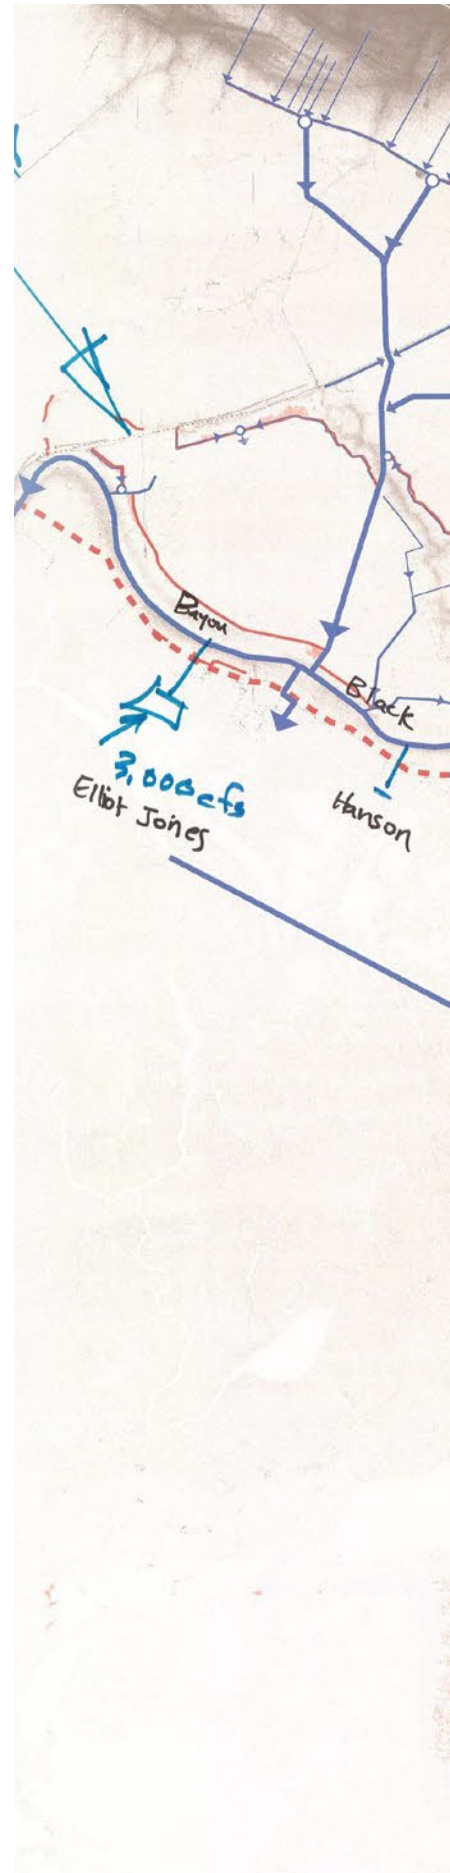 Bayou
Black
3,000 cfs
Elliot Jones
Hanson